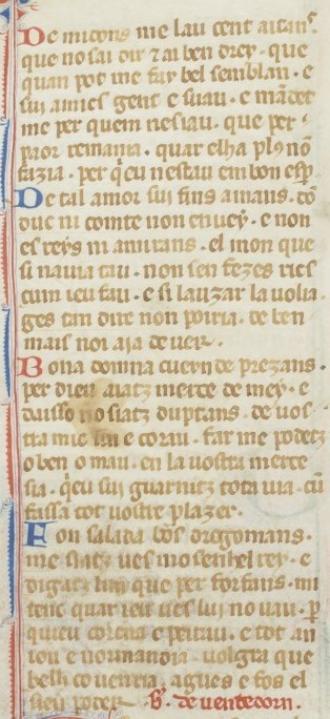 De midons me lau cent aitans.
que no sai dir z ai ben drey. que
quan pot me fay bel semblan. e
sui amics gent e suau. e mādet
me per quem nesiau. que per
paor remania. quar elha plꝰ nō
fazia. per q̄eu nestau em bon esp
De tal amor sui fins amans. cō
duc ni comte non envey. e non
es reys ni amirans. el mon que
si navia tau. non sen fezes rics
cum ieu fau. e si lauzar la volia
ges tan dire non poiria. de ben
mais noi aia de ver.
Bona domna cuern de prezans.
per dieu aiatz merce de mey. e
daisso no siatz duptans. de vos
tramic fin e corau. far me podetz
o ben o mau. en la vostra merce
sia. q̄eu sui guarnitz tota via. cū
fassa tot vostre plazer.
Fon salada bōs dregomans.
me siatz ves mo senhel rey. e
digatz lim que per forfans. mi
tenc quar ieu ves lui no vau. ꝑ
quieu torena e peitau. e tot an
iou e normandia. volgra que
belh covenria. agues e fos el
sieu poder b. de ventedorn.